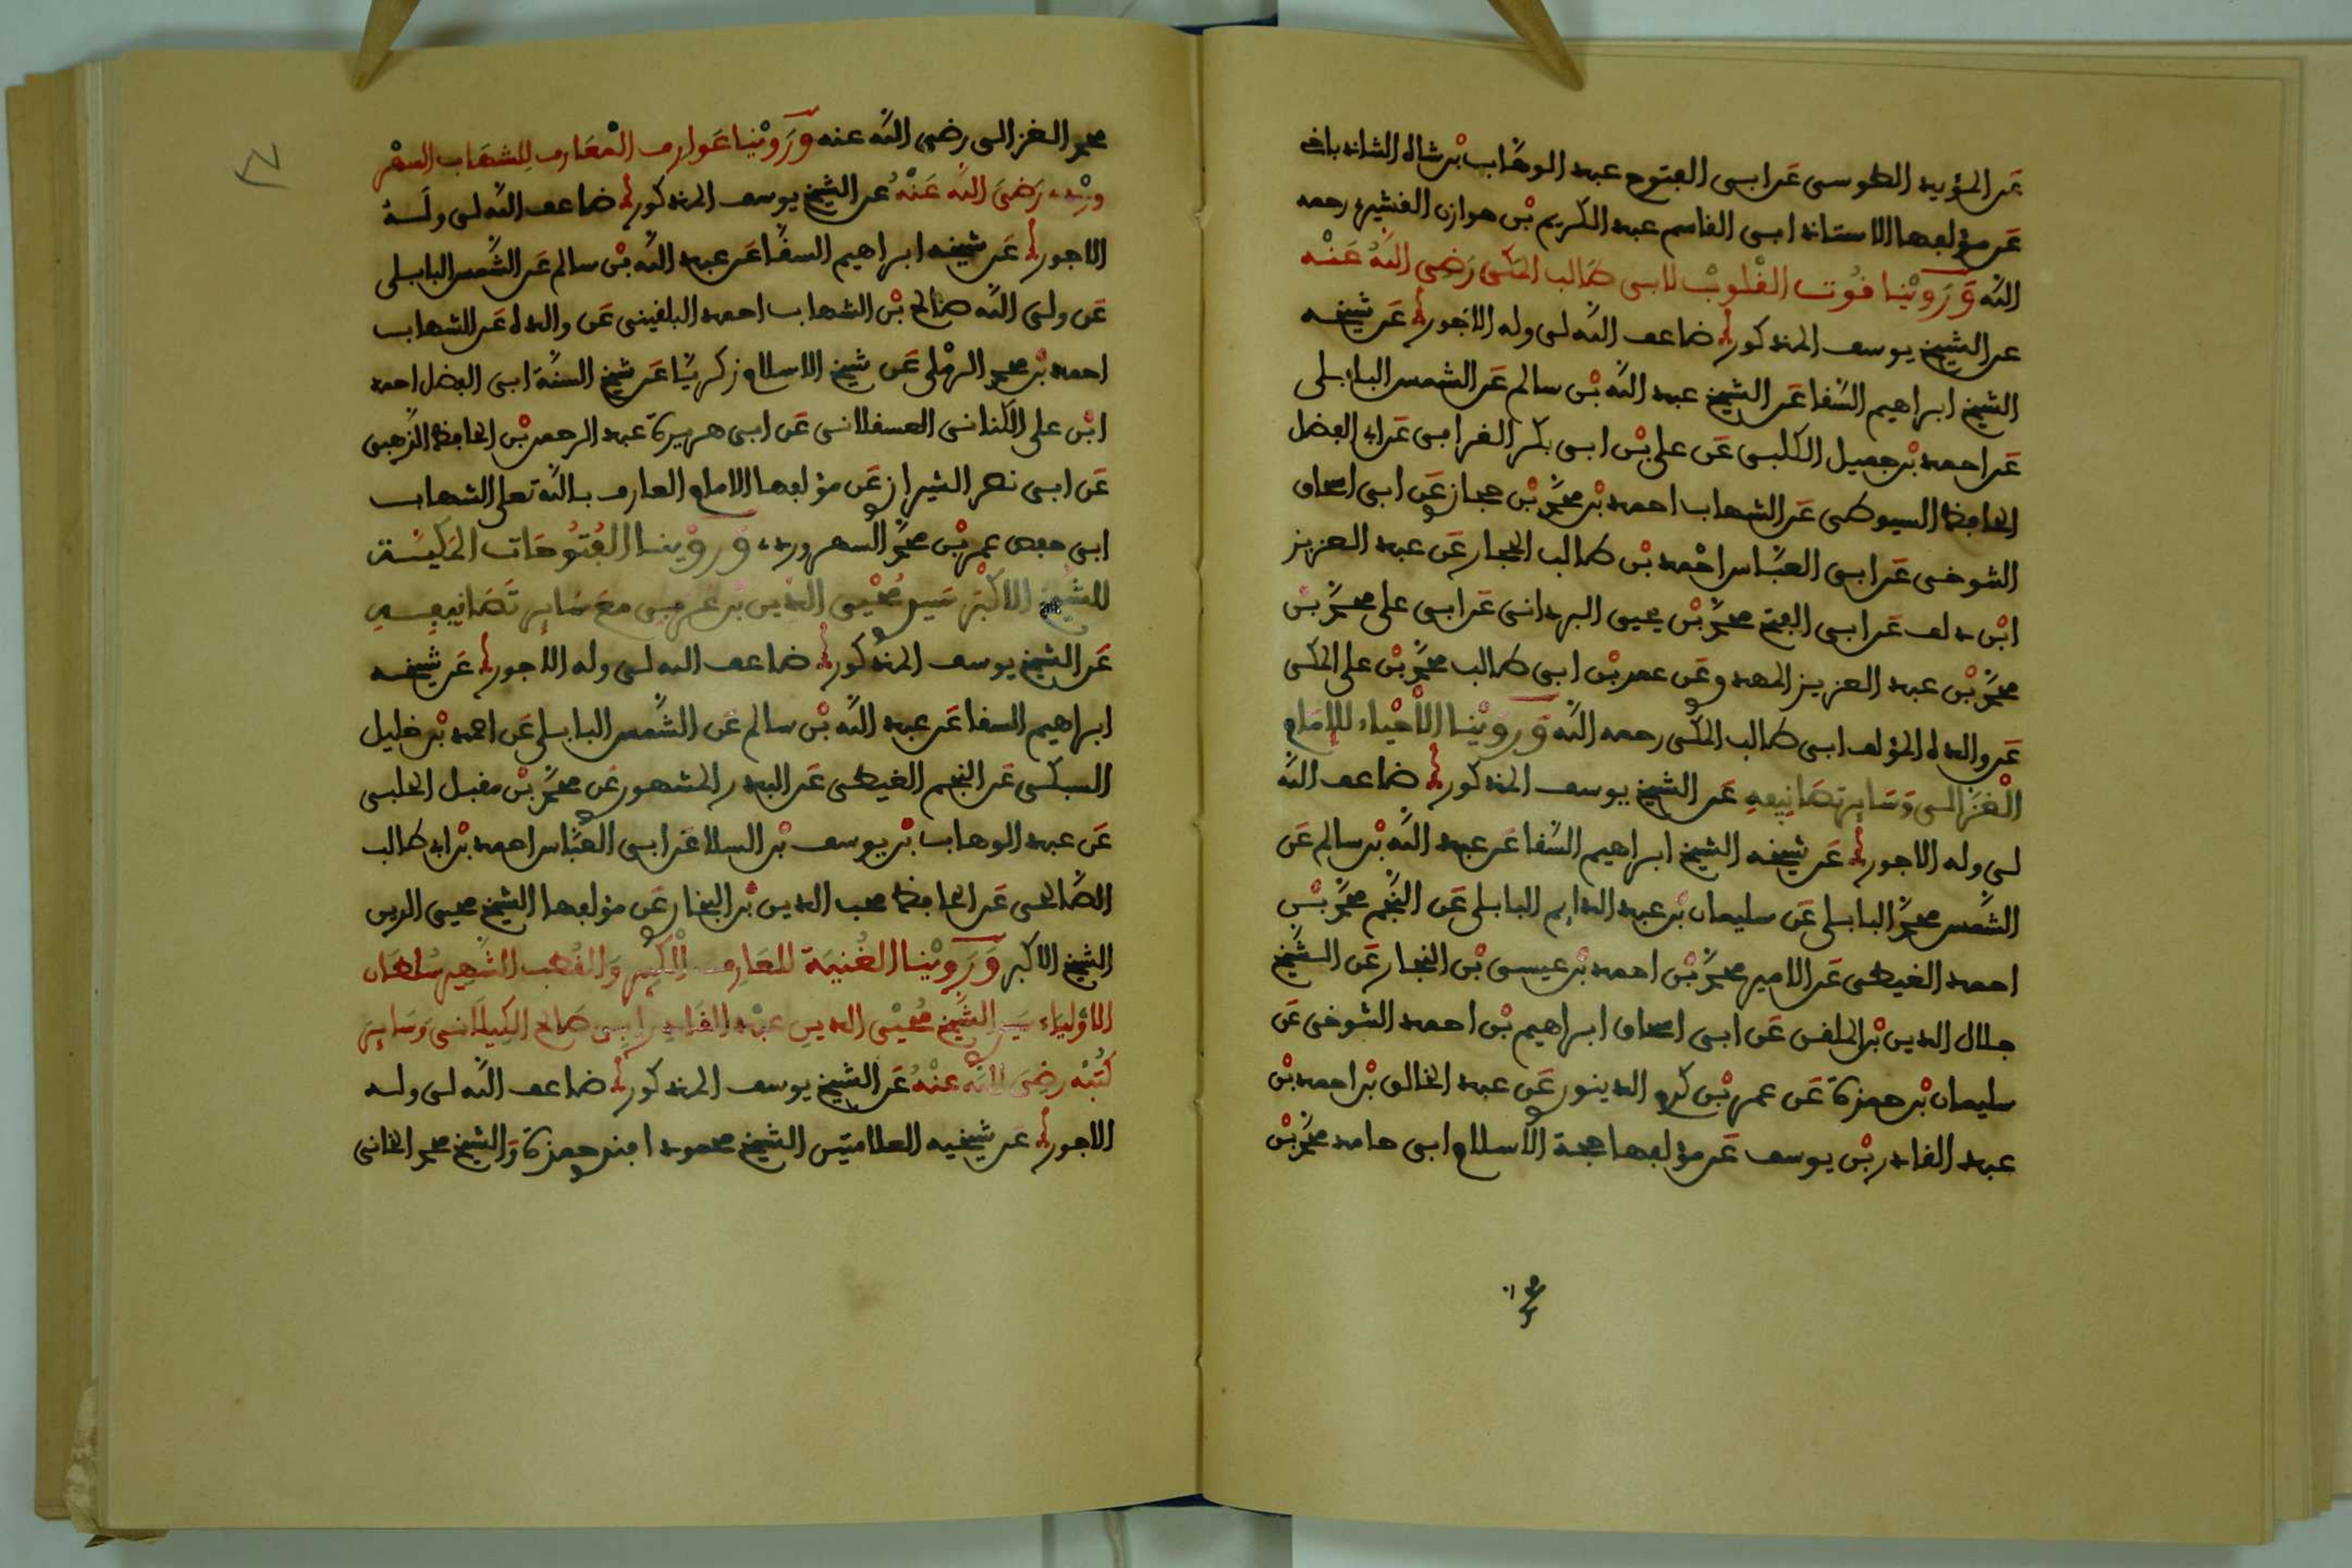 عن المؤيد الطوسي عن ابي الفتوح عبد الوهاب بن شاه الشاذياخي
عن مؤلفها الاستاذ ابي القاسم عبد الكريم بن هوازن القشيري رحمه
الله وروينا قوت القلوب لابي طالب المكي رضي الله عنه
عن الشيخ يوسف المذكور ضاعف الله لي وله الاجور عن شيخه
الشيخ ابراهيم السقا عن الشيخ عبد الله بن سالم عن الشمس البابلي
عن احمد بن جميل الكلبي عن علي بن ابي بكر القرافي عن ابي الفضل
الحافظ السيوطي عن الشهاب احمد بن محمد بن حجازي عن ابي اسحاق
التنوخي عن ابي العباس احمد بن طالب الحجار عن عبد العزيز
ابن دلف عن ابي الفتح محمد بن يحيى البرداني عن ابي علي محمد بن
محمد بن عبد العزيز المهدوي عن عمر بن ابي طالب محمد بن علي المكي
عن والده المؤلف ابي طالب المكي رحمه الله وروينا الاحياء للامام
الغزالي وساير تصانيفه عن الشيخ يوسف المذكور ضاعف الله
لي وله الاجور عن شيخه الشيخ ابراهيم السقا عن عبد الله بن سالم عن
الشمس محمد البابلي عن سليمان بن عبد الدايم البابلي عن النجم محمد بن
احمد الغيطي عن الامير محمد بن احمد بن عيسى بن النجار عن الشيخ
جلال الدين بن الملقن عن ابي اسحاق ابراهيم بن احمد التنوخي عن
سليمان بن حمزة عن عمر بن كرم الدينوري عن عبد الخالق بن احمد بن
عبد القادر بن يوسف عن مؤلفها حجة الاسلام ابي حامد محمد بن
محمد الغزالي رضي الله عنه وروينا عوارف المعارف للشهاب السهر
وردي رضي الله عنه عن الشيخ يوسف المذكور ضاعف الله لي وله
الاجور عن شيخه ابراهيم السقا عن عبد الله بن سالم عن الشمس البابلي
عن ولي الله صالح بن الشهاب احمد البلقيني عن والده عن الشهاب
احمد بن محمد الرملي عن شيخ الاسلام زكريا عن شيخ السنة ابي الفضل احمد
ابن علي الكناني العسقلاني عن ابي هريرة عبد الرحمن بن الحافظ الذهبي
عن ابي نصر الشيرازي عن مؤلفها الامام العارف بالله تعلى الشهاب
ابي حفص عمر بن محمد السهروردي وروينا الفتوحات المكية
للشيخ الاكبر سيدي محيي الدين بن عربي مع ساير تصانيفه
عن الشيخ يوسف المذكور ضاعف الله لي وله الاجور عن شيخه
ابراهيم السقا عن عبد الله بن سالم عن الشمس البابلي عن احمد بن خليل
السبكي عن النجم الغيطي عن البدر المشهدي عن محمد بن مقبل الحلبي
عن عبد الوهاب بن يوسف بن السلا عن ابي العباس احمد بن ابي طالب
الصالحي عن الحافظ محب الدين بن النجار عن مؤلفها الشيخ محيي الدين
الشيخ الاكبر وروينا الغنية للعارف الكبير والقطب الشهير سلطان
الاولياء سيدي الشيخ محيي الدين عبد القادر ابي صالح الكيلاني وساير
كتبه رضي الله عنه عن الشيخ يوسف المذكور ضاعف الله لي وله
الاجور عن شيخيه العلامتين الشيخ محمود افندي حمزة والشيخ محمد الخاني